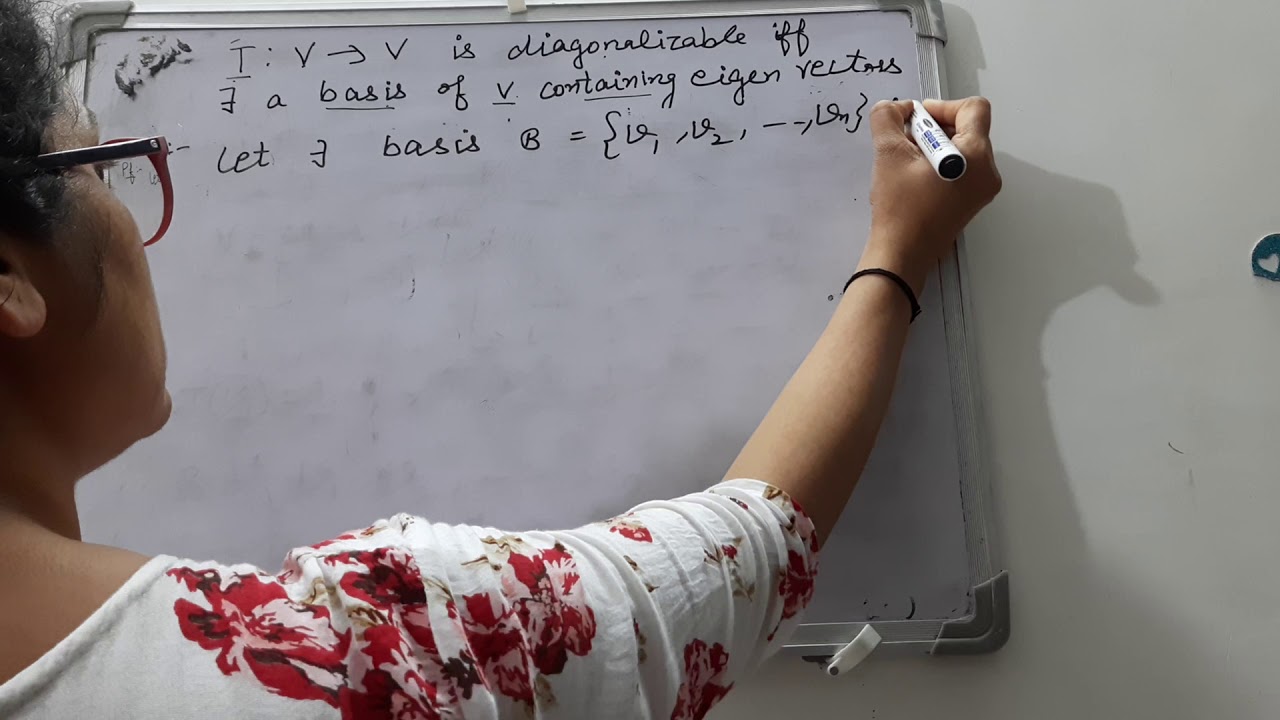 T : V → V is diagonalizable iff
∃ a basis of V containing eigen vectors
Let ∃ basis B = {v₁, v₂, ---, vₙ}